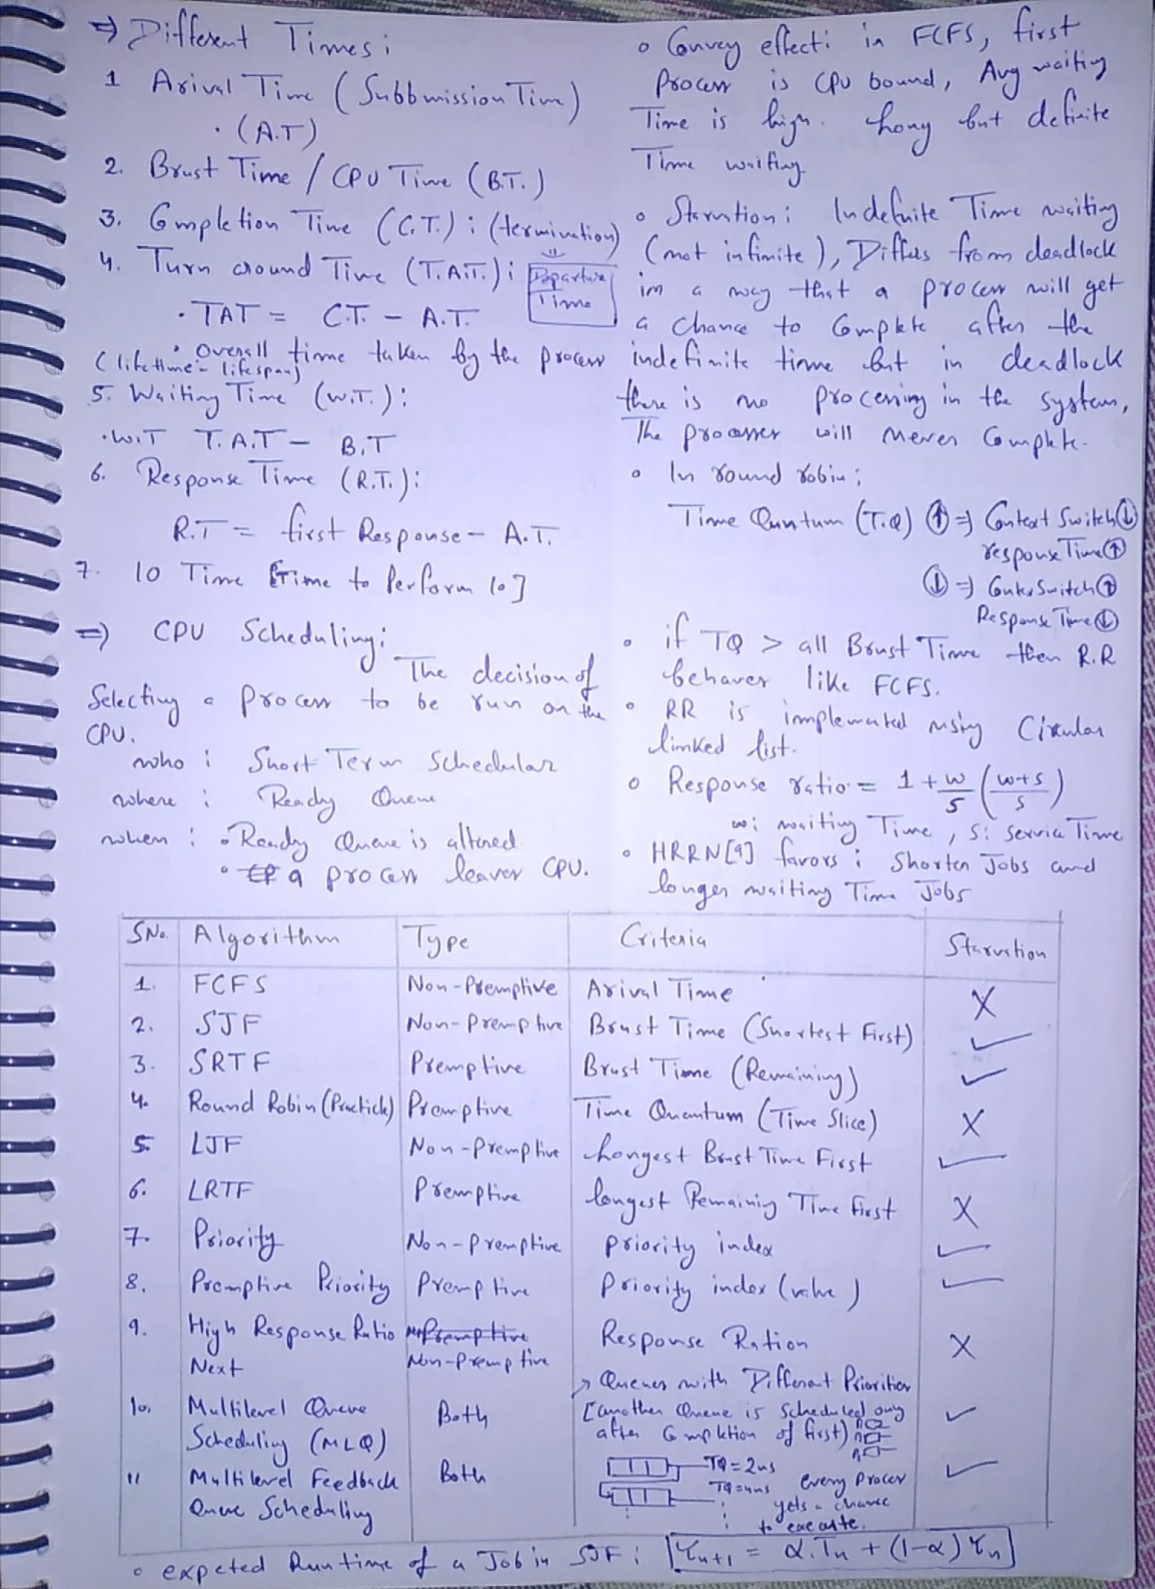 ⇒ Different Times:
1 Arival Time (Subbmission Time)
· (A.T)
2. Brust Time / CPU Time (B.T.)
3. Completion Time (C.T.) : (termination)
4. Turn around Time (T.A.T.) : Departure Time
· TAT = C.T. - A.T.
· Overall time taken by the process
(lifetime - lifespan)
5. Waiting Time (W.T.) :
· W.T T.A.T - B.T
6. Response Time (R.T.) :
R.T = first Response - A.T.
7. IO Time [Time to Perform IO]
⇒ CPU Scheduling:
The decision of
Selecting a process to be run on the
CPU.
who : Short Term Schedular
where : Ready Queue
when : • Ready Queue is altered
• a process leaves CPU.
o Convey effect: in FCFS, first
Process is CPU bound, Avg waiting
Time is high. Long but definite
Time waiting
o Starvation: Indefinite Time waiting
(not infinite), Differs from deadlock
in a way that a process will get
a chance to Complete after the
indefinite time but in deadlock
there is no processing in the system,
The processes will never Complete.
o In round robin:
Time Quntum (T.Q) ↑ ⇒ Context Switch ↓
response Time ↑
↓ ⇒ Conter Switch ↑
Response Time ↓
• if TQ > all Brust Time then R.R
behaves like FCFS.
• RR is implemented using Circular
linked list.
o Response ratio = 1 + w/s (w+s/s)
w: waiting Time, s: service Time
• HRRN[9] favors : Shorter Jobs and
longer waiting Time Jobs
SNo. Algorithm Type Criteria Starvation
1. FCFS Non-Premptive Arival Time ✗
2. SJF Non-Premptive Brust Time (Shortest First) ✓
3. SRTF Premptive Brust Time (Remaining) ✓
4. Round Robin (Practick) Premptive Time Quantum (Time Slice) ✗
5. LJF Non-Premptive Longest Brust Time First ✓
6. LRTF Premptive longest Remaining Time First ✗
7. Priority Non-Premptive Priority index ✓
8. Premptive Priority Premptive Priority index (value) ✓
9. High Response Ratio Next Non-Premptive Response Ration ✗
10. Multilevel Queue Scheduling (MLQ) Both → Queues with Different Priorities [another Queue is scheduled only after Completion of first) ✓
11 Multilevel Feedback Queue Scheduling Both TQ = 2ns TQ = 4ns every Process gets a chance to execute. ✓
o expeted Runtime of a Job in SJF : [τn+1 = α.Tn + (1-α) τn]